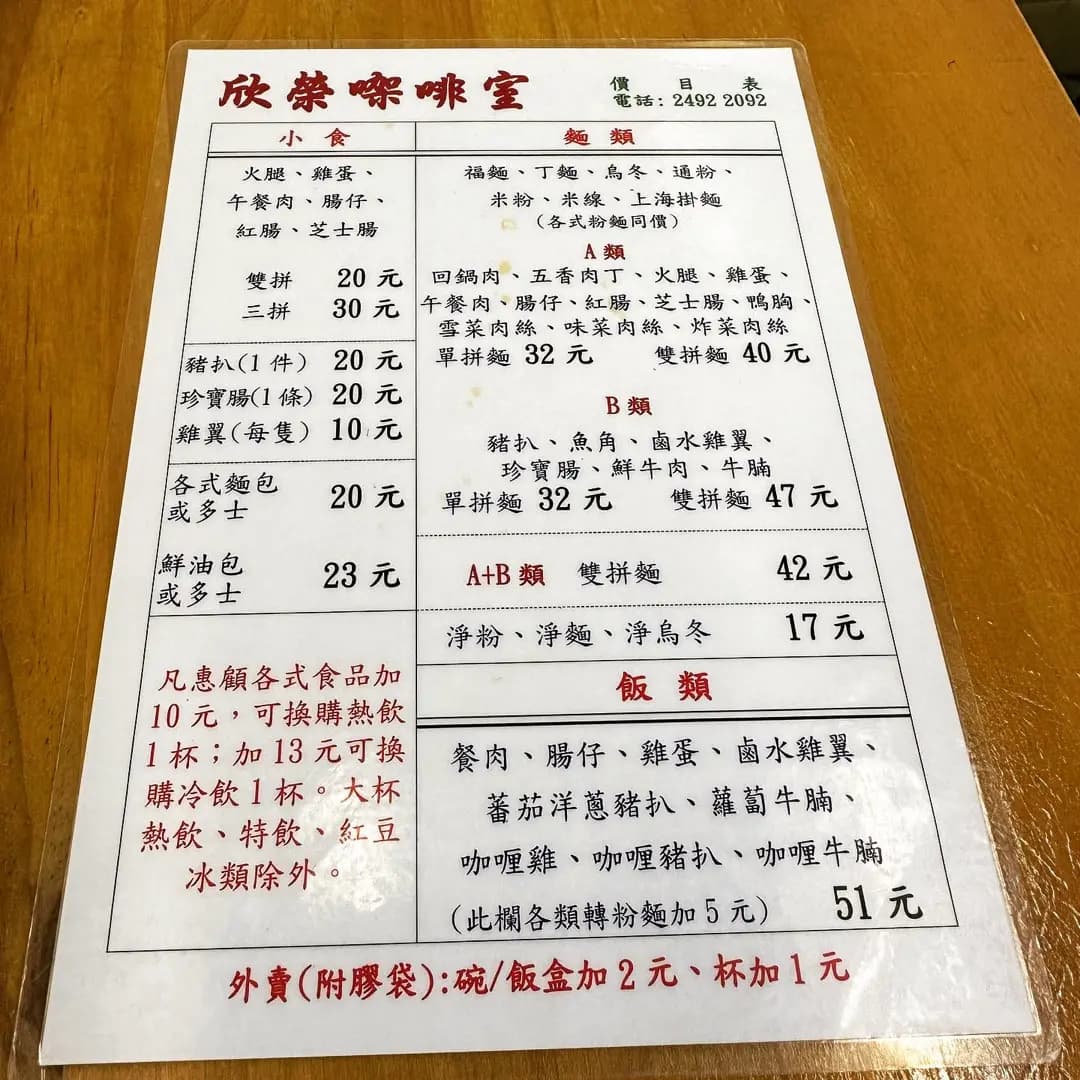 欣榮㗎啡室
價目表
電話: 2492 2092
小食
火腿、雞蛋、
午餐肉、腸仔、
紅腸、芝士腸
雙拼 20 元
三拼 30 元
豬扒(1 件) 20 元
珍寶腸(1 條) 20 元
雞翼(每隻) 10 元
各式麵包
或多士 20 元
鮮油包
或多士 23 元
凡惠顧各式食品加
10 元，可換購熱飲
1 杯；加 13 元可換
購冷飲 1 杯。大杯
熱飲、特飲、紅豆
冰類除外。
麵類
福麵、丁麵、烏冬、通粉、
米粉、米線、上海掛麵
(各式粉麵同價)
A 類
回鍋肉、五香肉丁、火腿、雞蛋、
午餐肉、腸仔、紅腸、芝士腸、鴨胸、
雪菜肉絲、味菜肉絲、炸菜肉絲
單拼麵 32 元 雙拼麵 40 元
B 類
豬扒、魚角、鹵水雞翼、
珍寶腸、鮮牛肉、牛腩
單拼麵 32 元 雙拼麵 47 元
A+B 類 雙拼麵 42 元
淨粉、淨麵、淨烏冬 17 元
飯類
餐肉、腸仔、雞蛋、鹵水雞翼、
蕃茄洋蔥豬扒、蘿蔔牛腩、
咖喱雞、咖喱豬扒、咖喱牛腩
(此欄各類轉粉麵加 5 元) 51 元
外賣(附膠袋):碗/飯盒加 2 元、杯加 1 元